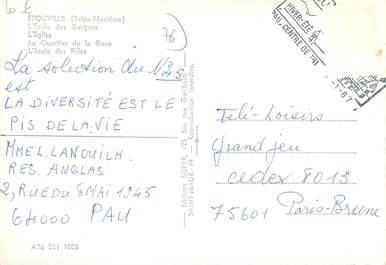 EPOUVILLE (Seine-Maritime)
L'Ecole des Garçons
L'Eglise
Le Quartier de la Gare
L'Ecole des Filles
76
La solution du N°245
est
LA DIVERSITÉ EST LE
PIS DE LA VIE.
MME L. LANOUILH.
RES. ANGLAS
2, RUE DU 8 MAI 1945
64000 PAU
A76 ESI 1000
Editions SOFER, 125 bis, rue Garibaldi
SAINT-MAUR - 94 - Reproduction interdite.
HIVER-ÉTÉ
PAU, CENTRE DE TRI
-1-87
Télé-Loisirs
Grand jeu
cedex 8013
75601 Paris-Brune